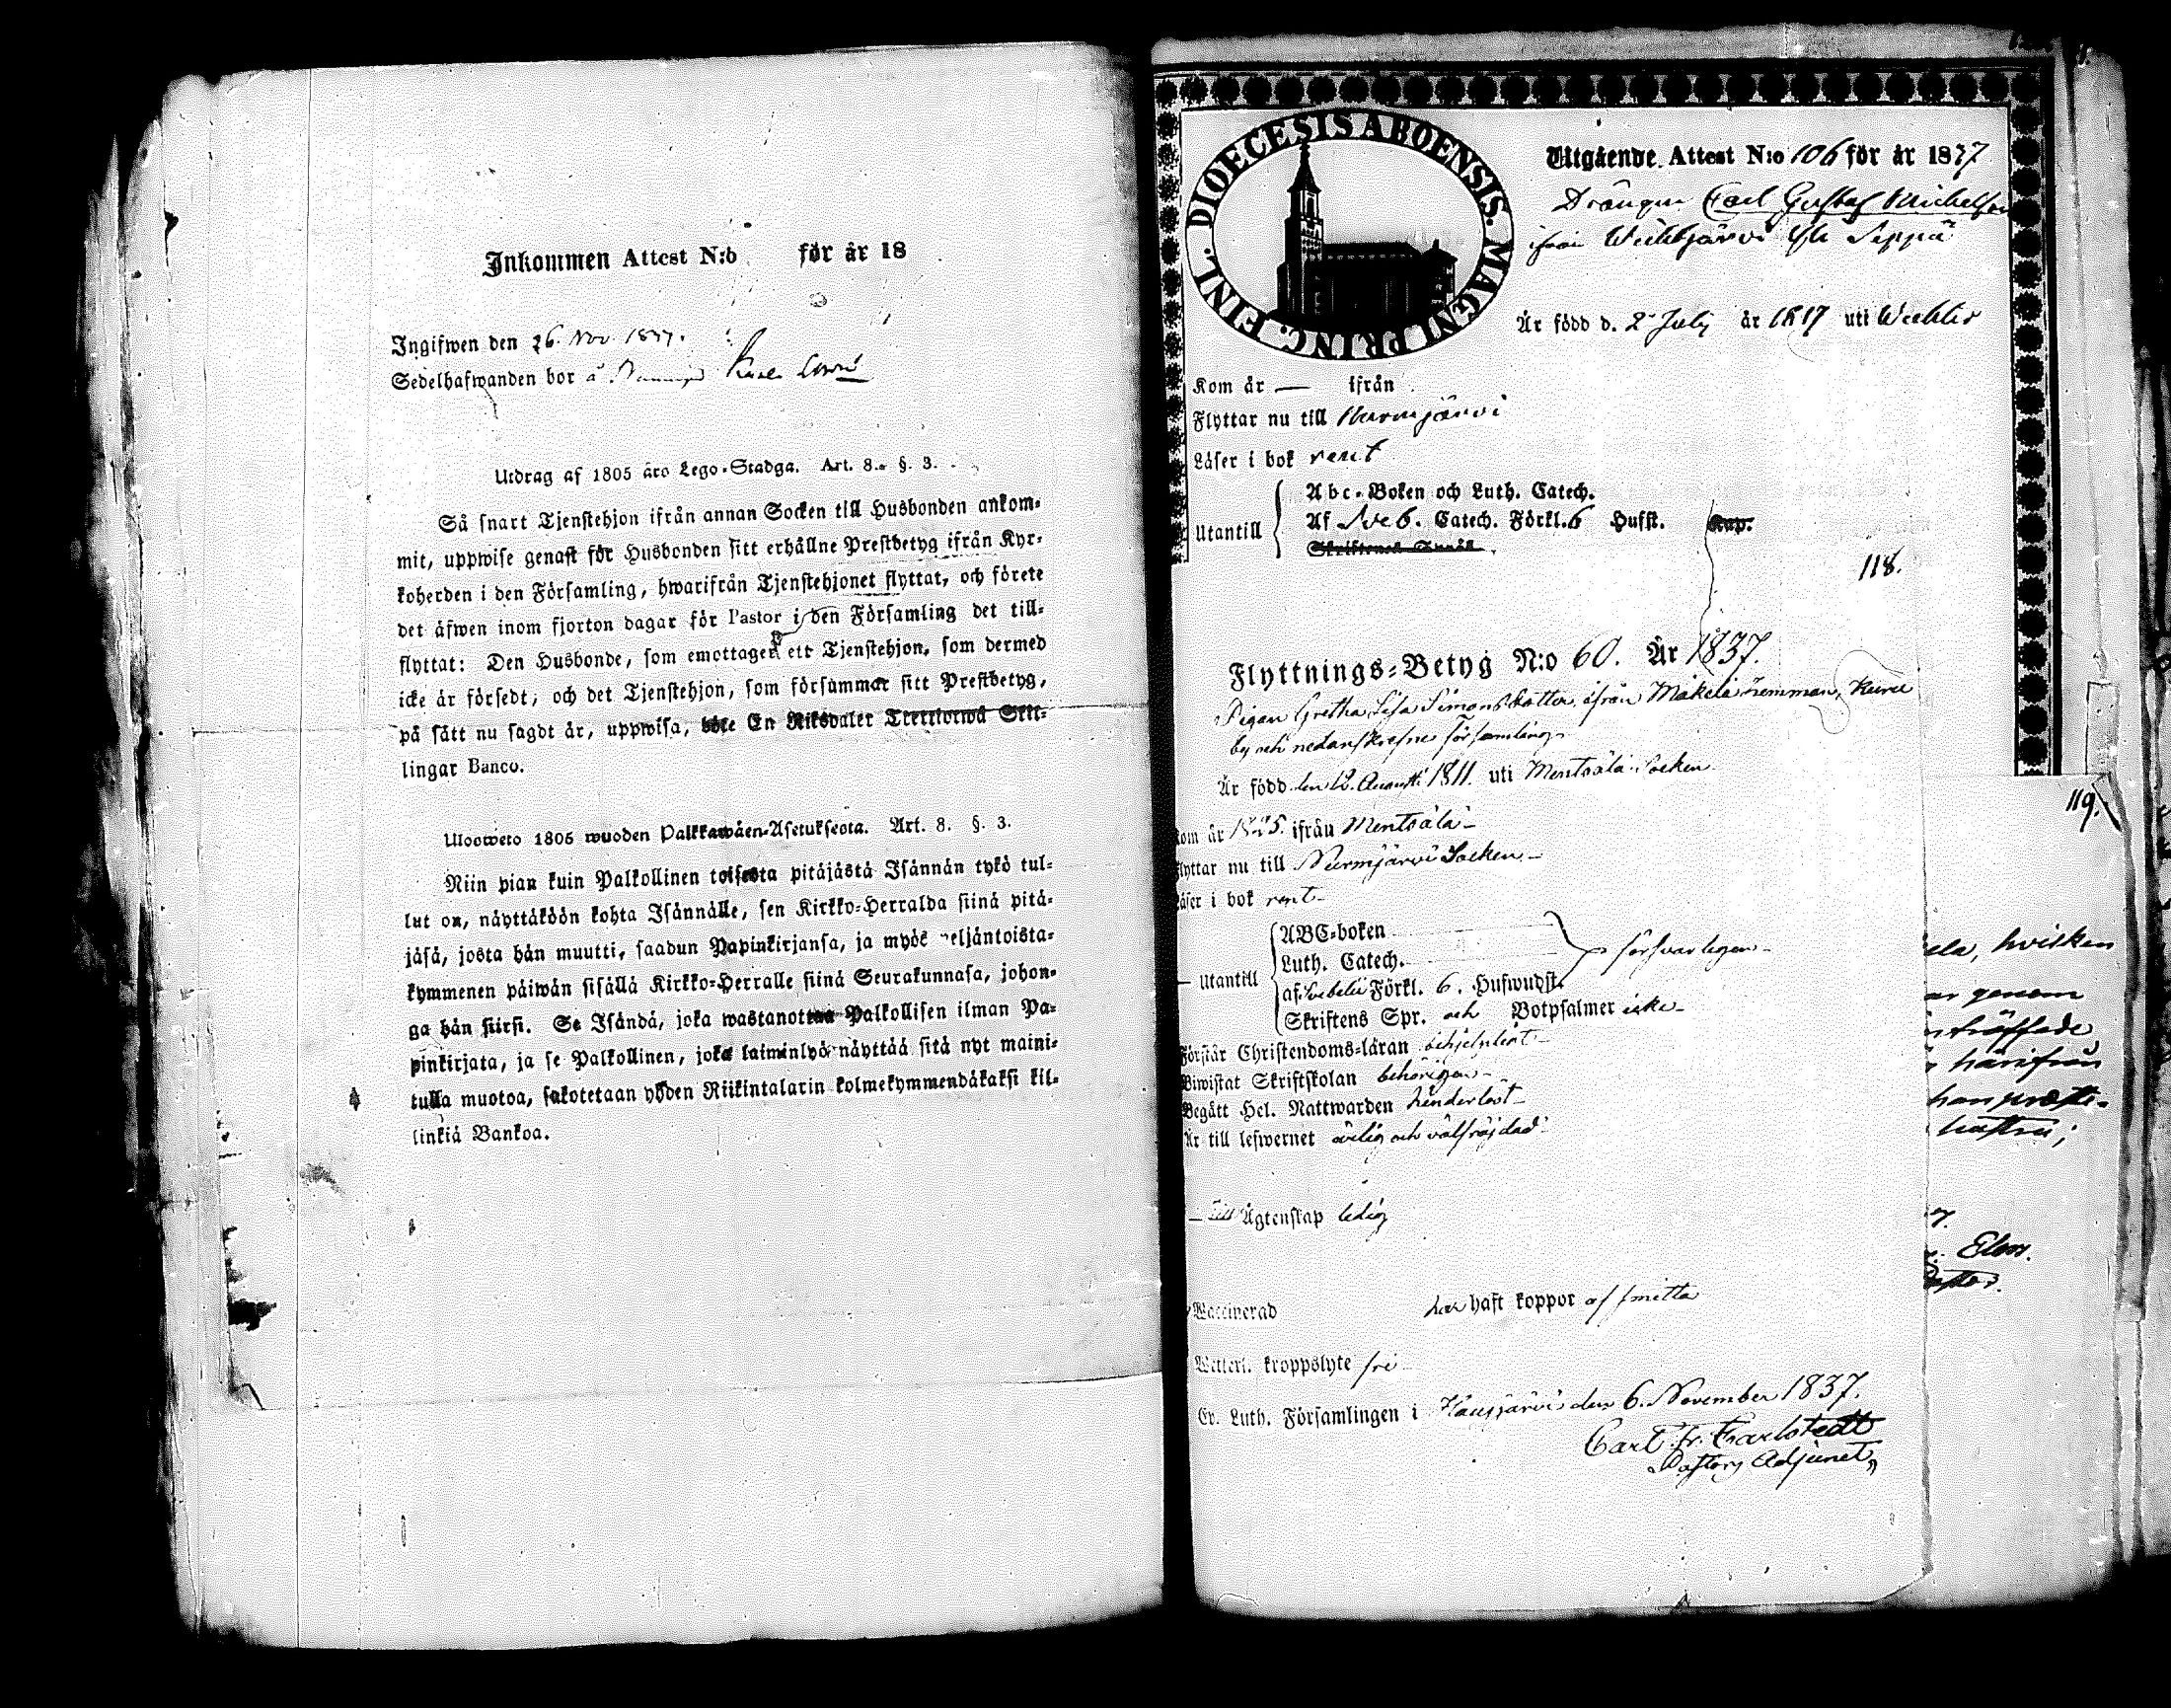 Inkommen Attest N:o för år 18
Ingifwen den 26 Nov 1837.
Sedelhafwanden bor å
Utdrag af 1805 års Lego-Stadga. Art. 8. §. 3.
Så snart Tjenstehjon ifrån annan Socken till Husbonden ankom-
mit, uppwise genast för Husbonden sitt erhållne Prestbetyg ifrån Kyr-
koherden i den Församling, hwarifrån Tjenstehjonet flyttat, och förete
det äfwen inom fjorton dagar för Pastor i den Församling det till-
flyttat: Den Husbonde, som emottager ett Tjenstehjon, som dermed
icke är försedt, och det Tjenstehjon, som försummar sitt Prestbetyg,
på sätt nu sagdt är, uppwisa, böte En Riksdaler Trettiotwå Skil-
lingar Banco.
Uloosweto 1805 wuoden Palkkawäen-Asetuksesta. Art. 8. §. 3.
Niin pian kuin Palkollinen toisesta pitäjästä Isännän tykö tul-
lut on, näyttäköön kohta Isännälle, sen Kirkko-Herralda siinä pitä-
jäsä, josta hän muutti, saadun Papinkirjansa, ja myös neljäntoista-
kymmenen päiwän sisällä Kirkko-Herralle siinä Seurakunnasa, johon-
ga hän siirsi. Se Isändä, joka wastanottaa Palkollisen ilman Pa-
pinkirjata, ja se Palkollinen, joka laiminlyö näyttää sitä nyt maini-
tulla muotoa, sakotetaan yhden Riikintalarin kolmekymmendäkaksi kil-
linkiä Bankoa.
DIOECESIS ABOENSIS. MAGNI PRINC. FINL.
Utgående Attest N:o 106 för år 1837
Drängen Carl Gustaf Michelsson
ifrån Seppä
Är född d. 2 July år 1817 uti
Kom år — ifrån
Flyttar nu till Nurmjärvi
Läser i bok rent
Utantill
Abc-Boken och Luth. Catech.
Af Sveb. Catech. Förkl. 6 Hufst. Kap.
Skriftenes Språk
118.
Flyttnings-Betyg N:o 60. År 1837.
Pigan Gretha Lisa Simonsdotter ifrån Mäkelä hemman,
by och nedanskrefne församling
Är född den 12. Augusti 1811. uti Mentsälä Socken
Kom år ifrån Mentsälä
Flyttar nu till Nurmjärvi Socken
Läser i bok rent
Utantill
ABC-boken
Luth. Catech.
af Svebelii Förkl. 6. Hufwudst.
Skriftens Spr. och Botpsalmer icke
försvarligen
Förstår Christendoms-läran behjelpligt
Biwistat Skriftskolan behörigen
Begått Hel. Nattwarden hinderlöst
Är till lefwernet ärlig och välfräjdad
till Ägtenskap ledig
Waccinerad har haft koppor af smitta
Wetterl. kroppslyte fri
Ev. Luth. Församlingen i Hausjärvi den 6. November 1837.
Carl Fr. Carlstedt
Pastors Adjunct
119.
hvilken
genom
härifrån